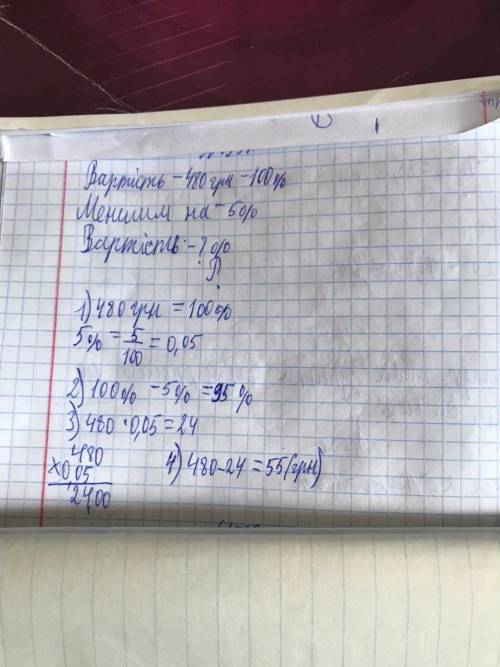 Вартість - 480 грн - 100%
Меншим на - 5%
Вартість: - ? %
?
1) 480 грн = 100%
5% = 5/100 = 0,05
2) 100% - 5% = 95%
3) 480 · 0,05 = 24
480
× 0 05
2400
4) 480 - 24 = 55 (грн)